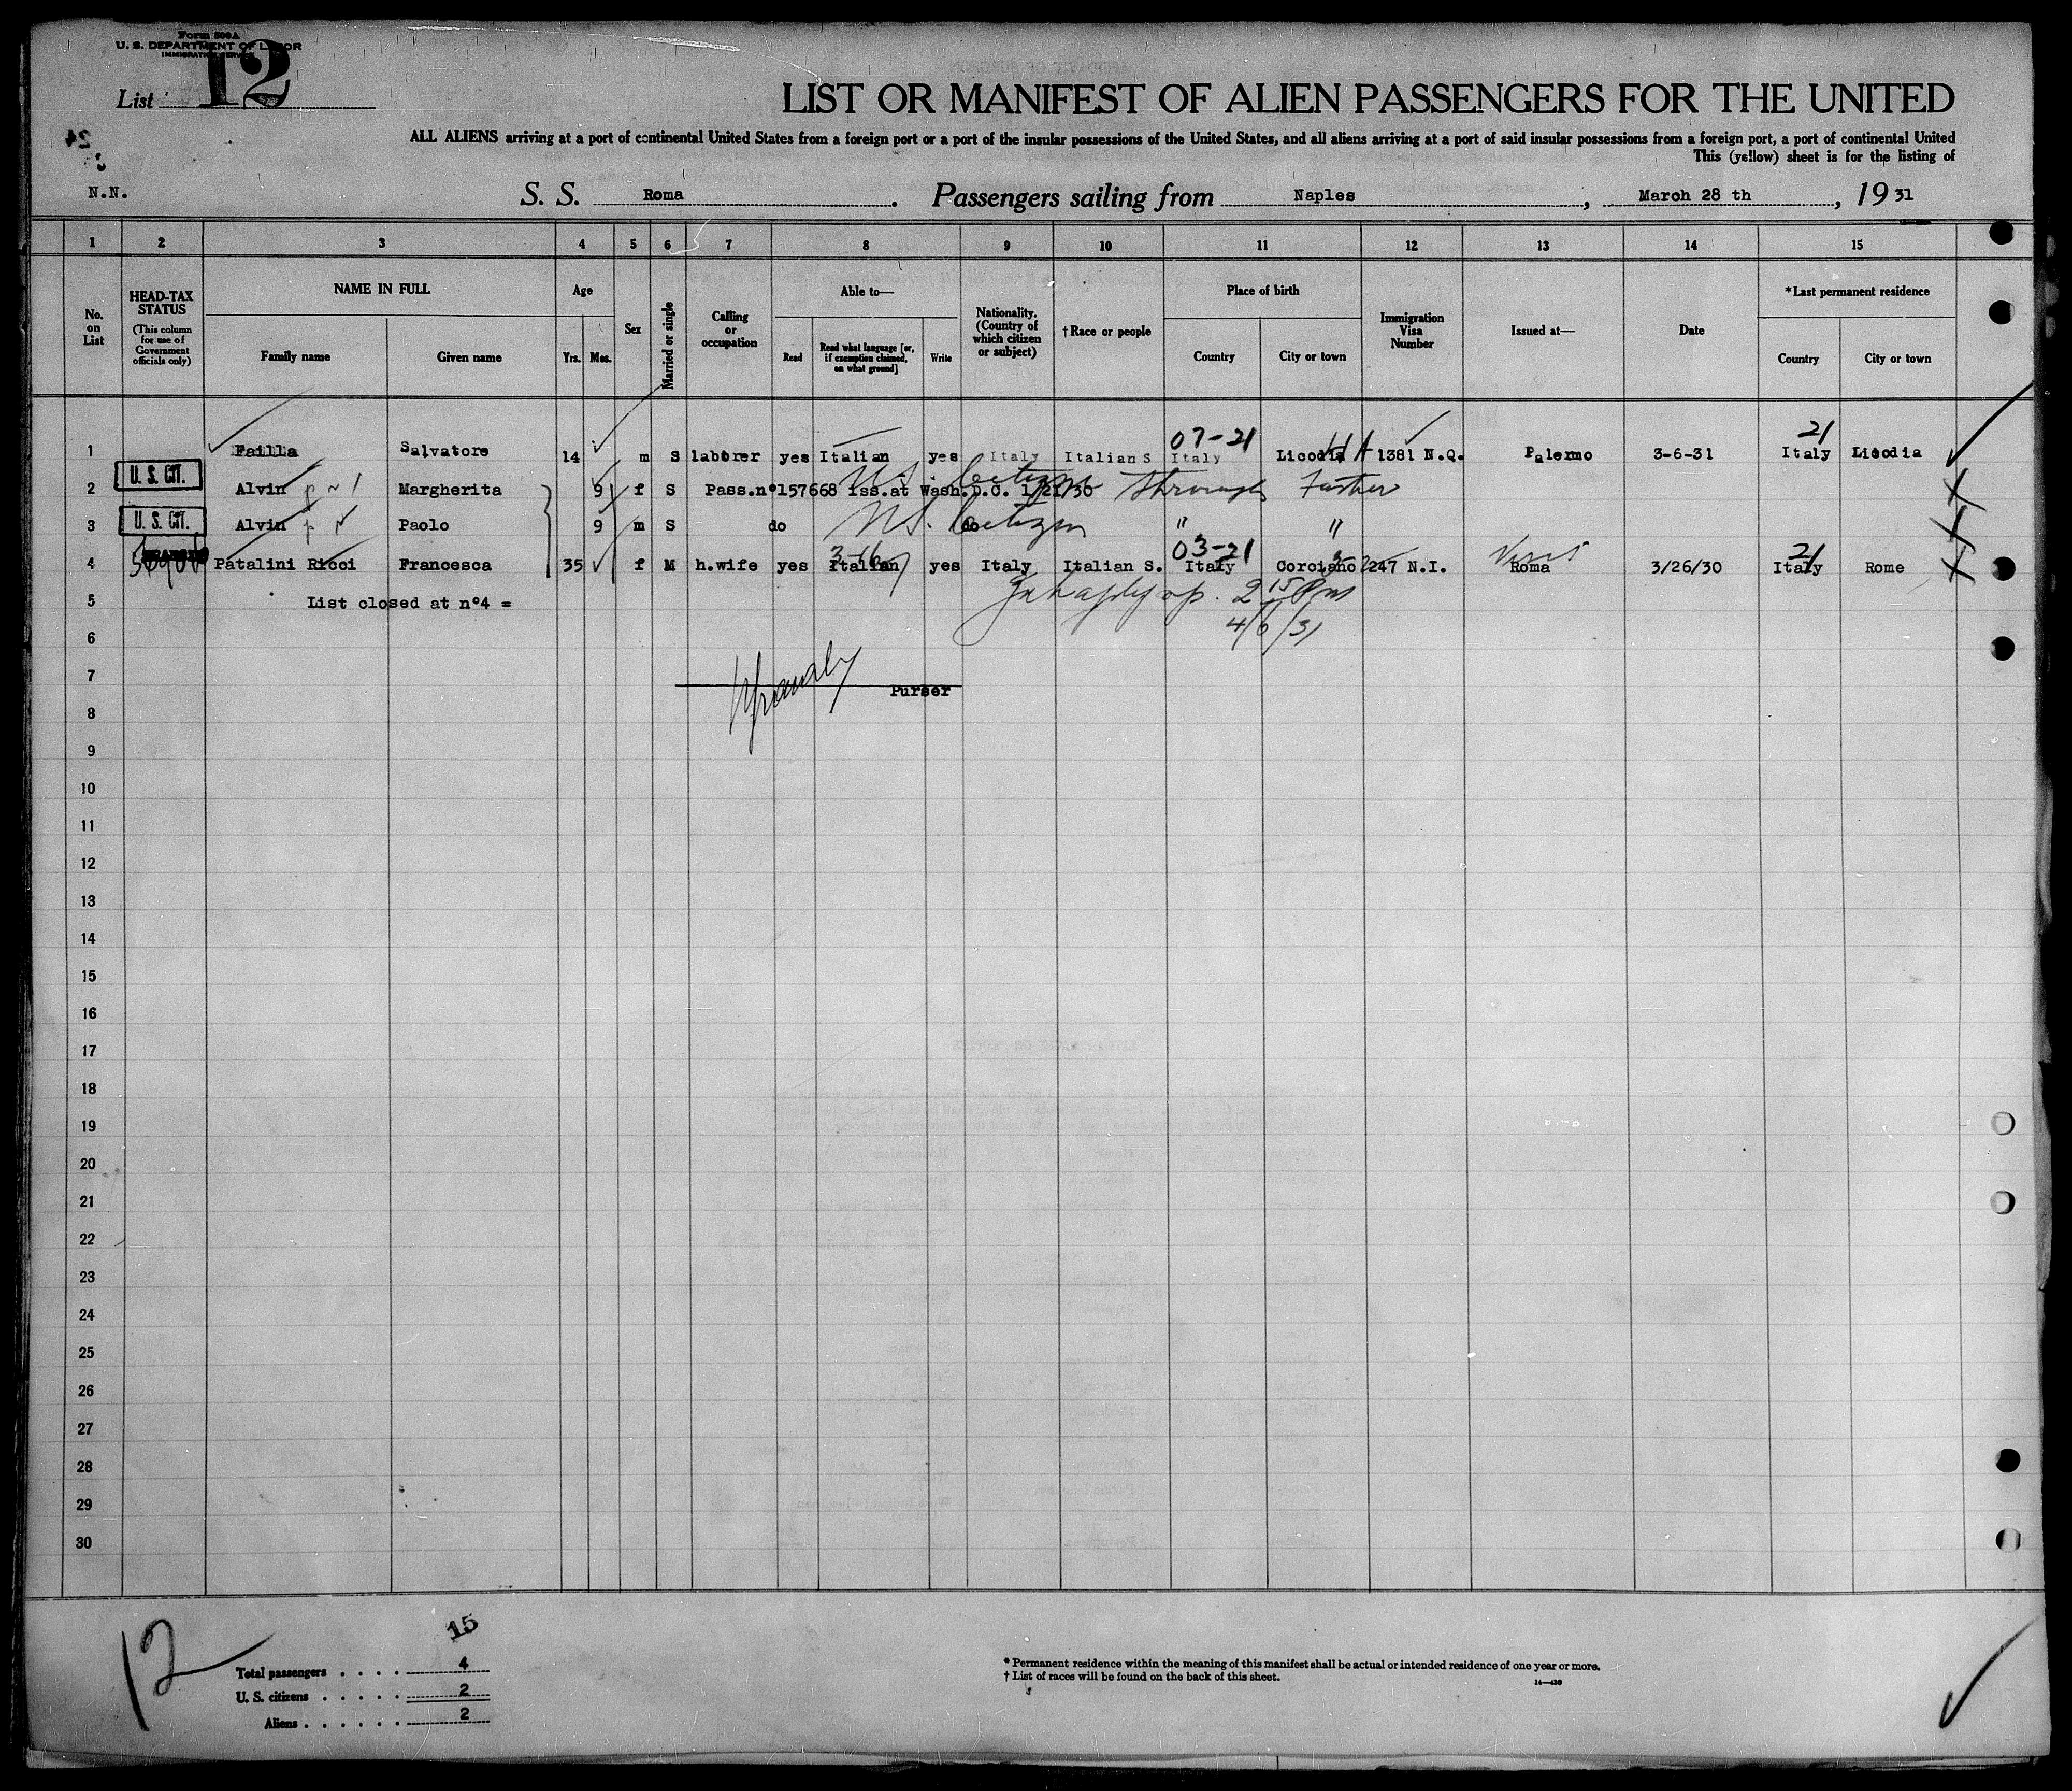 Form 500A
U. S. DEPARTMENT OF LABOR
IMMIGRATION SERVICE
List 12
LIST OR MANIFEST OF ALIEN PASSENGERS FOR THE UNITED
ALL ALIENS arriving at a port of continental United States from a foreign port or a port of the insular possessions of the United States, and all aliens arriving at a port of said insular possessions from a foreign port, a port of continental United
This (yellow) sheet is for the listing of
24
N.N.
S. S. Roma. Passengers sailing from Naples, March 28 th, 1931
1 2 3 4 5 6 7 8 9 10 11 12 13 14 15
No. on List
HEAD-TAX STATUS (This column for use of Government officials only)
NAME IN FULL
Family name Given name
Age
Yrs. Mos.
Sex
Married or single
Calling or occupation
Able to—
Read Read what language [or, if exemption claimed, on what ground] Write
Nationality. (Country of which citizen or subject)
†Race or people
Place of birth
Country City or town
Immigration Visa Number
Issued at—
Date
*Last permanent residence
Country City or town
07-21 21
1 Failla Salvatore 14 m S laborer yes Italian yes Italy Italian S Italy Licodia 1381 N.Q. Palermo 3-6-31 Italy Licodia
U. S. CIT.
2 Alvin Margherita 9 f S Pass.nº157668 iss.at Wash.D.C. 1/21/30 US Citizen through Father
U. S. CIT.
3 Alvin Paolo 9 m S do do US. Citizen " "
03-21 Visit 21
4 Patalini Ricci Francesca 35 f M h.wife yes Italian yes Italy Italian S. Italy Corciano 247 N.I. Roma 3/26/30 Italy Rome
5 List closed at nº4 =
2 15 Pm
4/6/31
6
7
Purser
8
9
10
11
12
13
14
15
16
17
18
19
20
21
22
23
24
25
26
27
28
29
30
12
15
Total passengers . . . . 4
U. S. citizens . . . . . 2
Aliens . . . . . . 2
* Permanent residence within the meaning of this manifest shall be actual or intended residence of one year or more.
† List of races will be found on the back of this sheet.
14—430